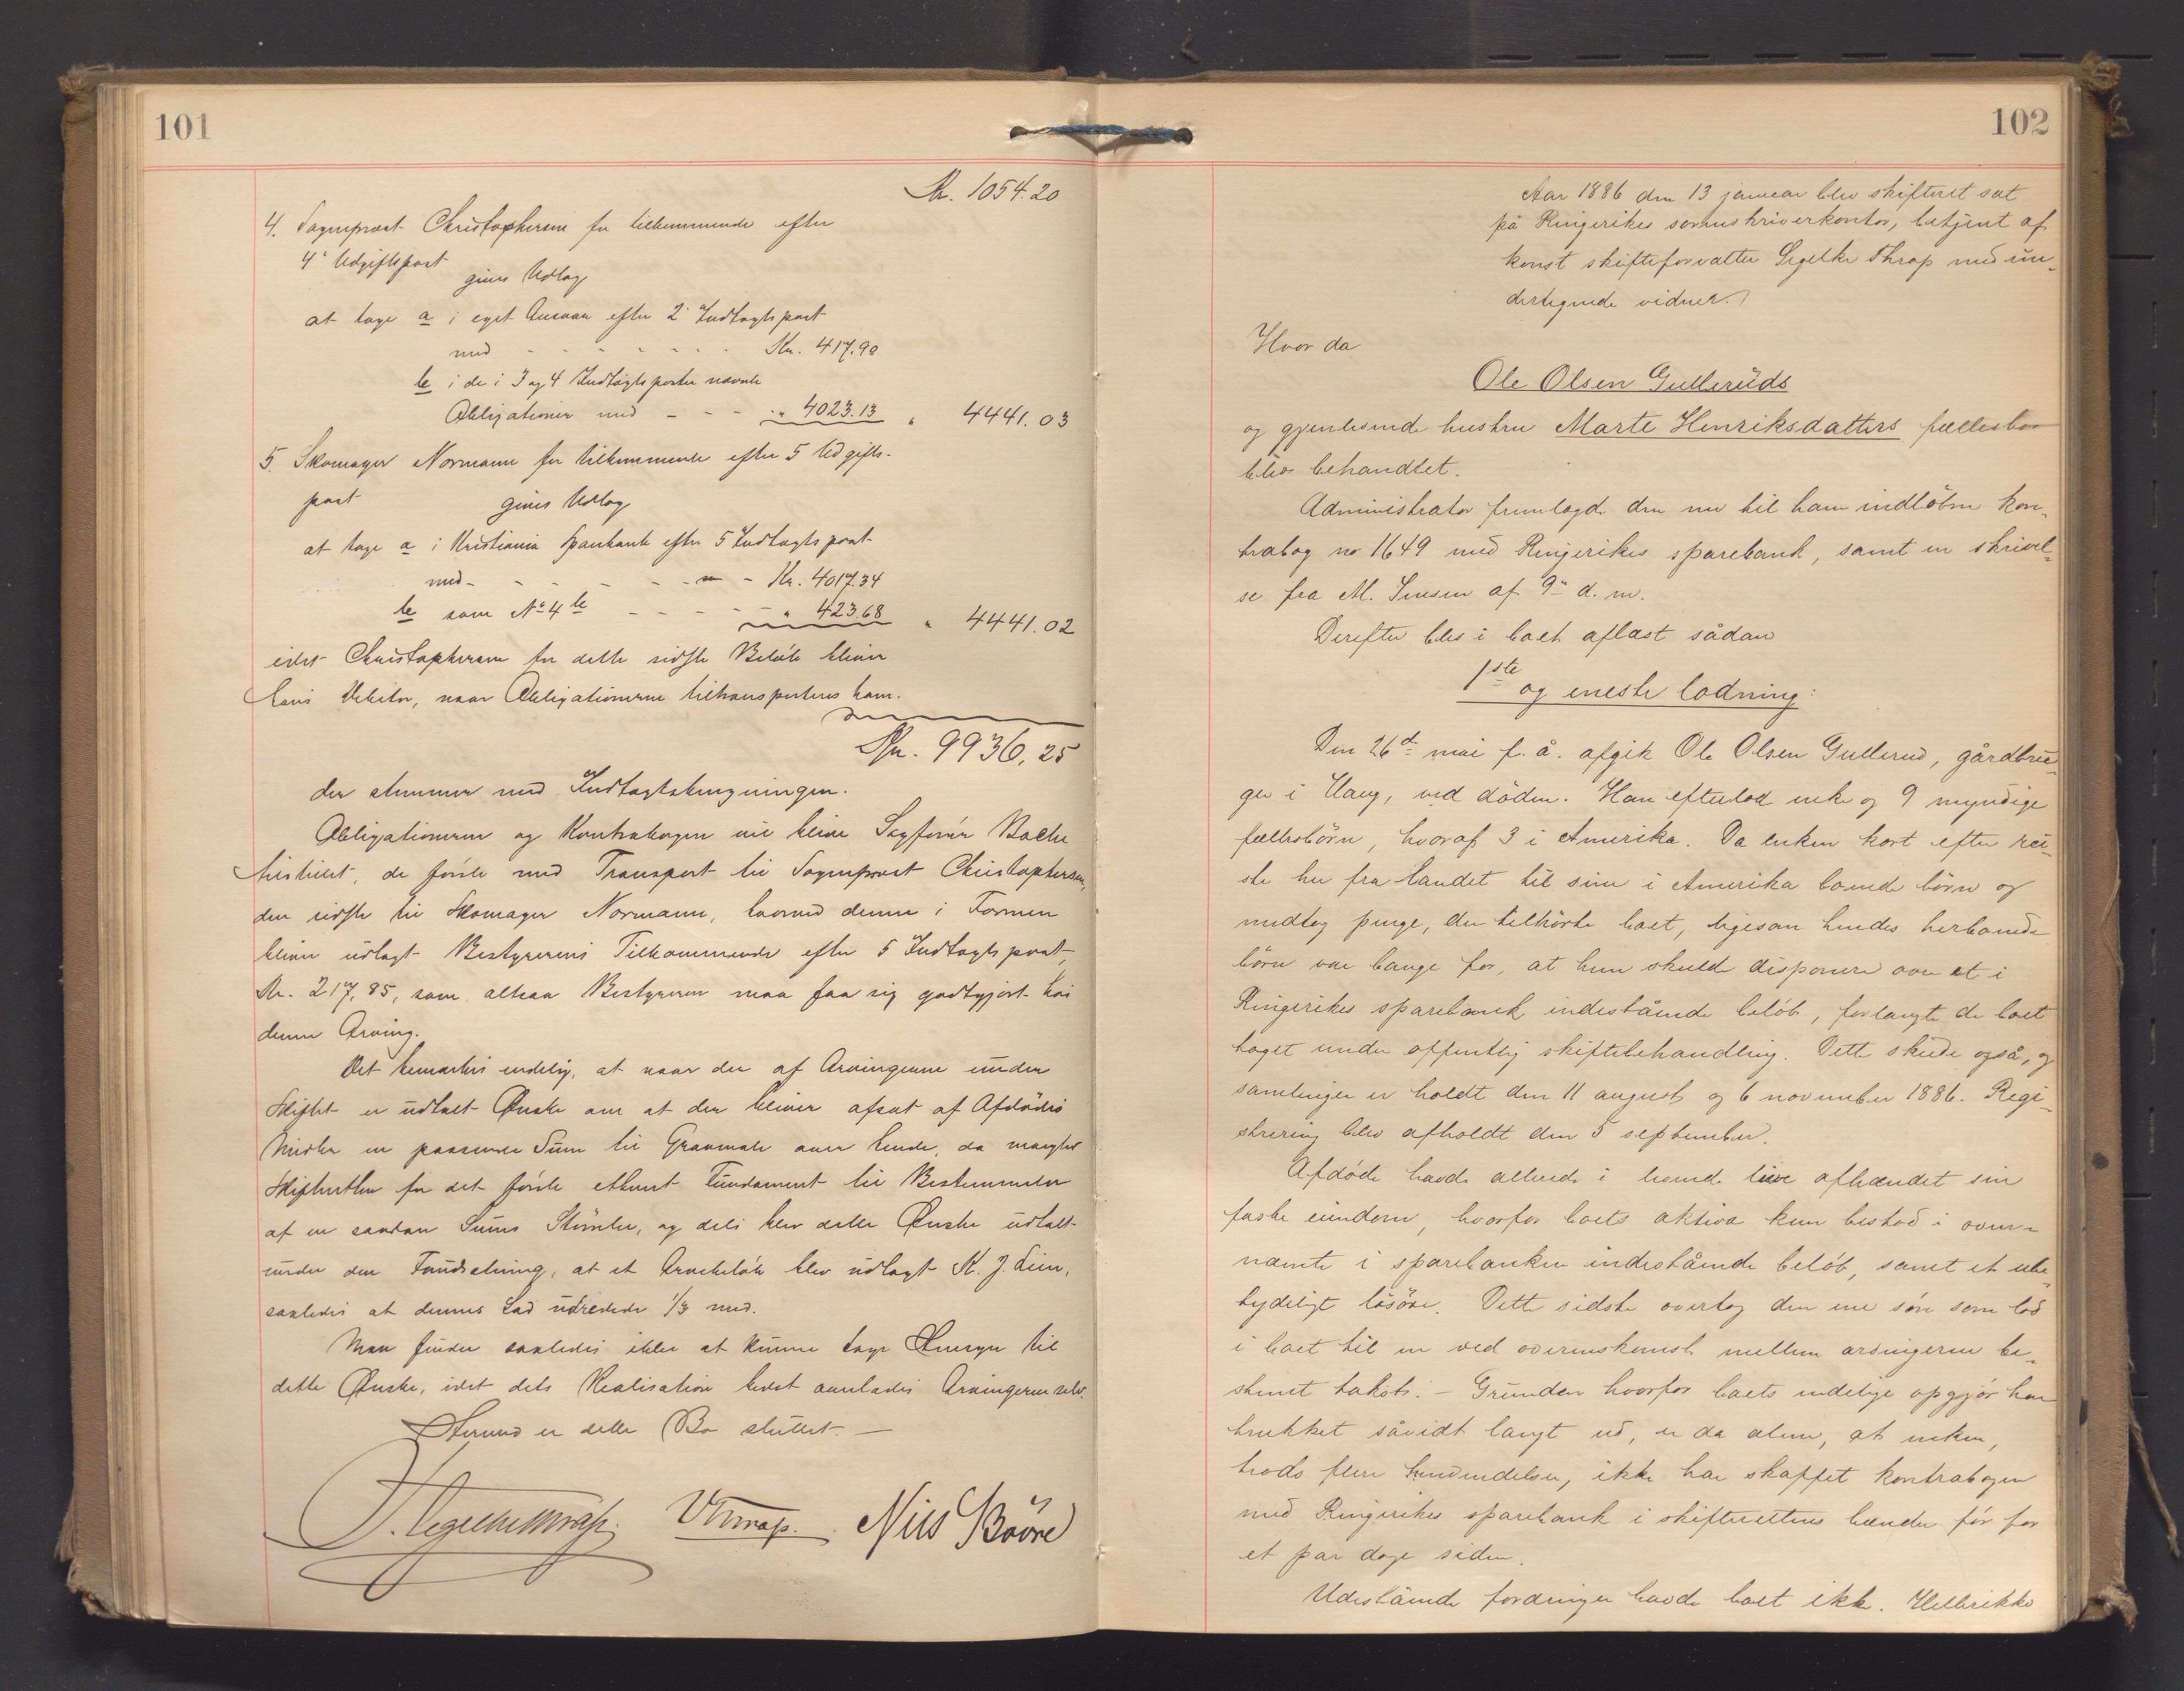 101
Kr. 1054.20
4. Sogneprest Christophersen for tilkommende efter
4' Udgiftspost
gives Udlæg
at tage a i eget Ansvar efter 2' Indtægtspost
med - - - - - - Kr. 417.90
b i de i 3 og 4 Indtægtsposter nævnte
Obligationer med - - - " 4023.13 " 4441.03
5. Skomager Normann for tilkommende efter 5 Udgifts-
post
gives Udlæg
at tage a i Kristiania Sparebank efter 5 Indtægtspost
med - - - - - - Kr. 4017.34
b som No 4 b - - - - - " 423.68 " 4441.02
idet Christophersen for dette sidste Beløb bliver
hans Debitor, naar Obligationerne tiltransporteres ham.
Kr. 9936,25
der stemmer med Indtægtsberegningen.
Obligationerne og Kontrabogen vil blive Sagfører Bache
tilstillet, de første med Transport til Sogneprest Christophersen,
den sidste til Skomager Normann, hvorved denne i Formen
bliver udlagt Bestyrerens Tilkommende efter 5 Indtægtspost,
Kr. 217,85, som altsaa Bestyreren maa faa sig godtgjort hos
denne Arving.
Det bemærkes endelig, at naar der af Arvingerne under
Skiftet er udtalt Ønske om at der bliver afsat af Afdødes
Midler en passende Sum til Gravmæle over hende, da mangler
Skifteretten for det første ethvert Fundament til Bestemmelse
af en saadan Sums Størrelse, og dels blev dette Ønske udtalt
under den Forudsætning, at et Arvebeløb blev udlagt K. J. Lien,
saaledes at dennes Lod udredede 1/3 med.
Man finder saaledes ikke at kunne tage Hensyn til
dette Ønske, idet dets Realisation bedst overlades Arvingerne selv.
Hermed er dette Bo sluttet. —
S. Segelcke Thrap. VThrap. Nils Bövre
102
Aar 1886 den 13 januar blev skifteret sat
på Ringerikes sorenskriverkontor, betjent af
konst skifteforvalter Segelke Thrap med un-
dertegnede vidner.
Hvor da
Ole Olsen Gulleruds
og gjenlevende hustru Marte Henriksdatters fællesbo
blev behandlet.
Administrator fremlagde den nu til ham indløbne kon-
trabog no 1649 med Ringerikes sparebank, samt en skrivel-
se fra M. Jensen af 9de d. m.
Derefter blev i boet aflæst sådan
1ste og eneste lodning:
Den 26de mai f. å. afgik Ole Olsen Gullerud, gårdbru-
ger i Haug, ved døden. Han efterlod enke og 9 myndige
fællesbörn, hvoraf 3 i Amerika. Da enken kort efter rei-
ste her fra landet til sine i Amerika boende börn og
medtog penge, der tilhörte boet, ligesom hendes herboende
börn var bange for, at hun skulde disponere over et i
Ringerikes sparebank indestående beløb, forlangte de boet
taget under offentlig skiftebehandling. Dette skede også, og
samlinger er holdt den 11 august og 6 november 1886. Regi-
strering blev afholdt den 5 september.
Afdöde havde allerede i levende live afhændet sin
faste eiendom, hvorfor boets aktiva kun bestod i oven-
nævnte i sparebanken indestående beløb, samt et ube-
tydeligt lösöre. Dette sidste overtog den ene sön som lod
i boet til en ved overenskomst mellem arvingerne be-
stemt takst. – Grunden hvorfor boets endelige opgjör har
trukket såvidt langt ud, er da alene, at enken,
trods flere henvendelser, ikke har skaffet kontrabogen
med Ringerikes sparebank i skifterettens hænder för for
et par dage siden.
Udestående fordringer havde boet ikke. Heller ikke